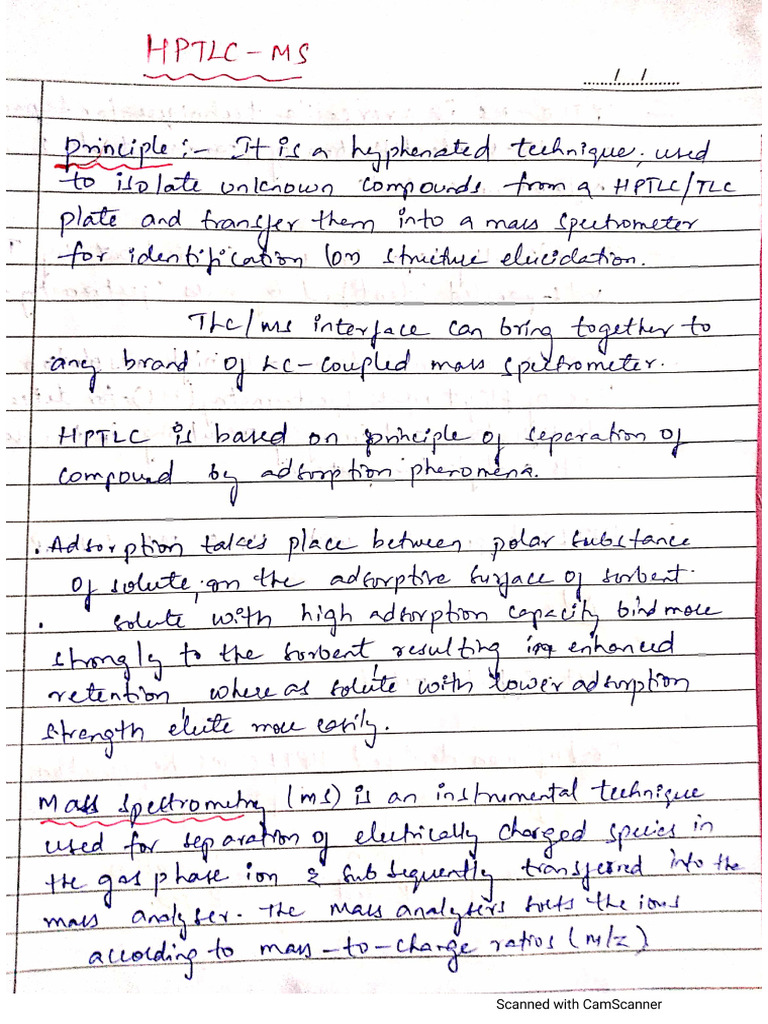 HPTLC-MS
/ /
principle:- It is a hyphenated technique, used
to isolate unknown compounds from a HPTLC/TLC
plate and transfer them into a mass spectrometer
for identification (or) structure elucidation.
TLC/MS interface can bring together to
any brand of LC-coupled mass spectrometer.
HPTLC is based on principle of separation of
compound by adsorption phenomena.
. Adsorption takes place between polar substance
of solute, on the adsorptive surface of sorbent.
. solute with high adsorption capacity bind more
strongly to the sorbent resulting in enhanced
retention where as solute with lower adsorption
strength elute more easily.
Mass spectrometry (ms) is an instrumental technique
used for separation of electrically charged species in
the gas phase ion & subsequently transfered into the
mass analyser. The mass analysers sorts the ions
according to mass-to-charge ratios (m/z)
Scanned with CamScanner